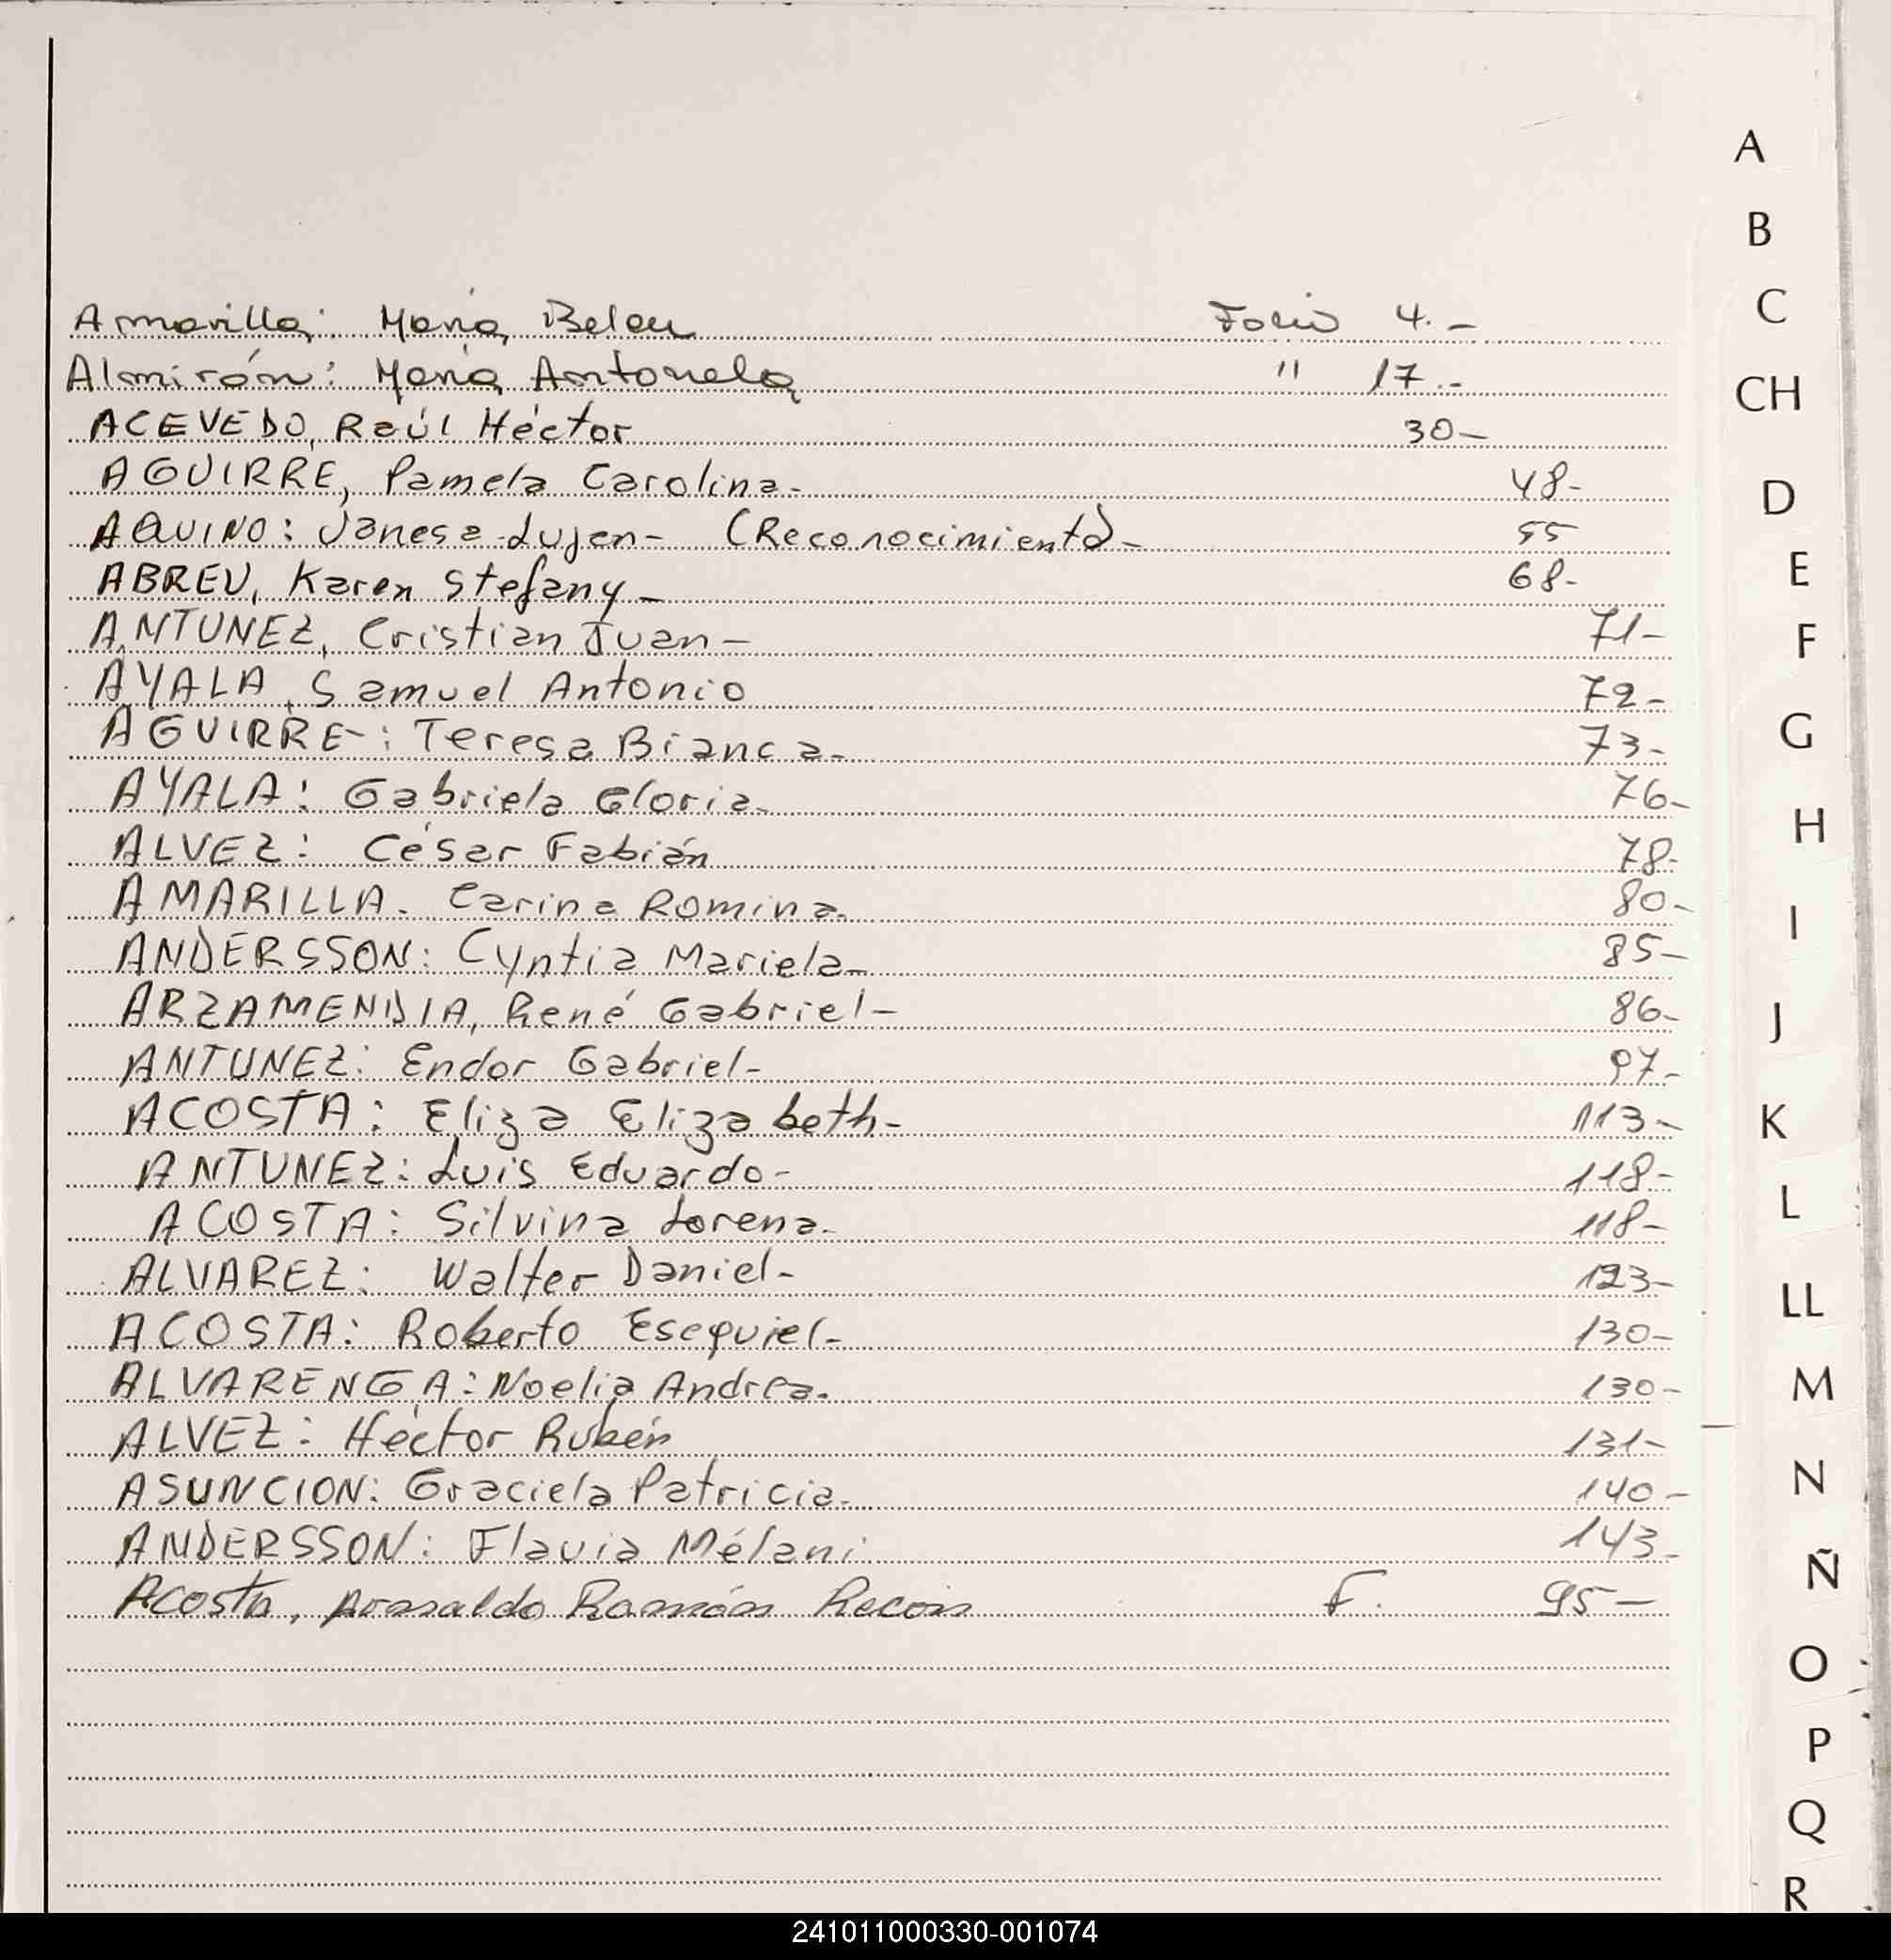 A
B
C
CH
D
E
F
G
H
I
J
K
L
LL
M
N
Ñ
O
P
Q
R
Amarilla: María Belen Folio 4.-
Almirón: María Antonela " 17.-
ACEVEDO, Raúl Héctor 30-
AGUIRRE, Pamela Carolina- 48-
AQUINO: Vanesa Lujan- (Reconocimiento)- 55
ABREU, Karen Stefany- 68-
ANTUNEZ, Cristian Juan- 71-
AYALA, Samuel Antonio 72-
AGUIRRE-: Teresa Bianca- 73-
AYALA: Gabriela Gloria- 76-
ALVEZ: César Fabián 78-
AMARILLA- Carina Romina- 80-
ANDERSSON: Cyntia Mariela- 85-
ARZAMENDIA, René Gabriel- 86-
ANTUNEZ: Endor Gabriel- 97-
ACOSTA: Eliza Elizabeth- 113-
ANTUNEZ: Luis Eduardo- 118-
ACOSTA: Silvina Lorena- 118-
ALVAREZ: Walter Daniel- 123-
ACOSTA: Roberto Esequiel- 130-
ALVARENGA: Noelia Andrea- 130-
ALVEZ: Héctor Rubén 131-
ASUNCION: Graciela Patricia- 140-
ANDERSSON: Flavia Mélani 143-
Acosta, Arnaldo Ramón F. 95-
241011000330-001074